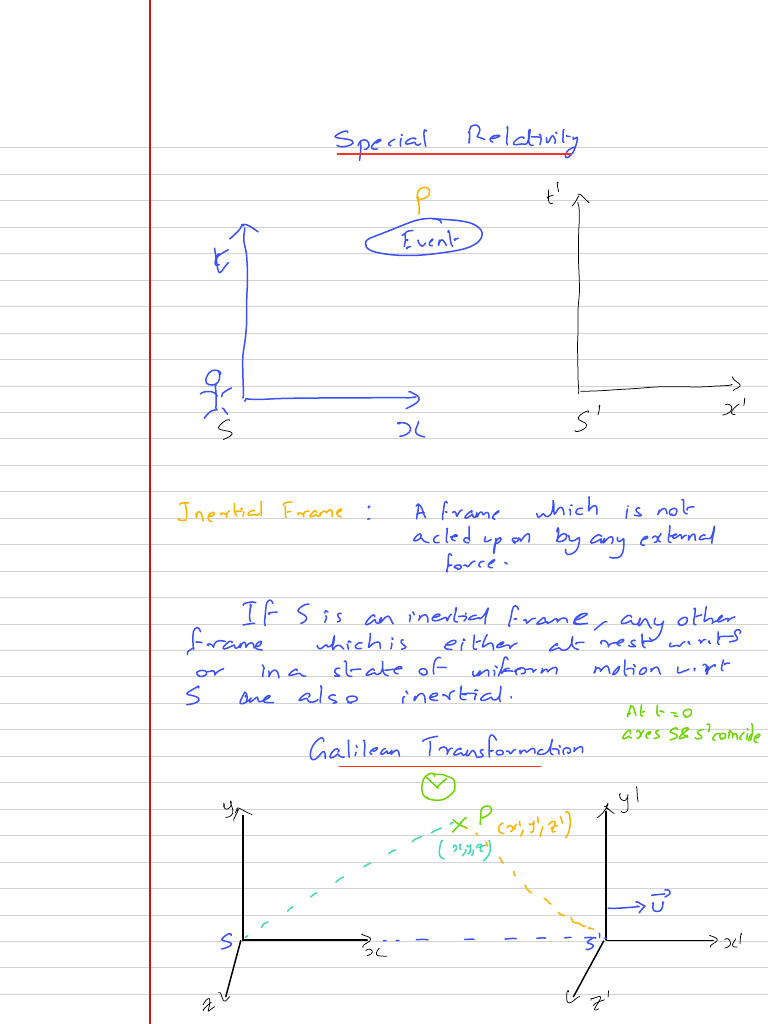 Special Relativity
P
Event
t
t'
S
x
S'
x'
Inertial Frame : A frame which is not
acted up on by any external
force.
If S is an inertial frame, any other
frame which is either at rest w.r.t S
or in a state of uniform motion w.r.t
S are also inertial.
At t=0
axes S & S' coincide
Galilean Transformation
y
y'
P
(x', y', z')
(x, y, z)
U
S
x
S'
x'
z
z'